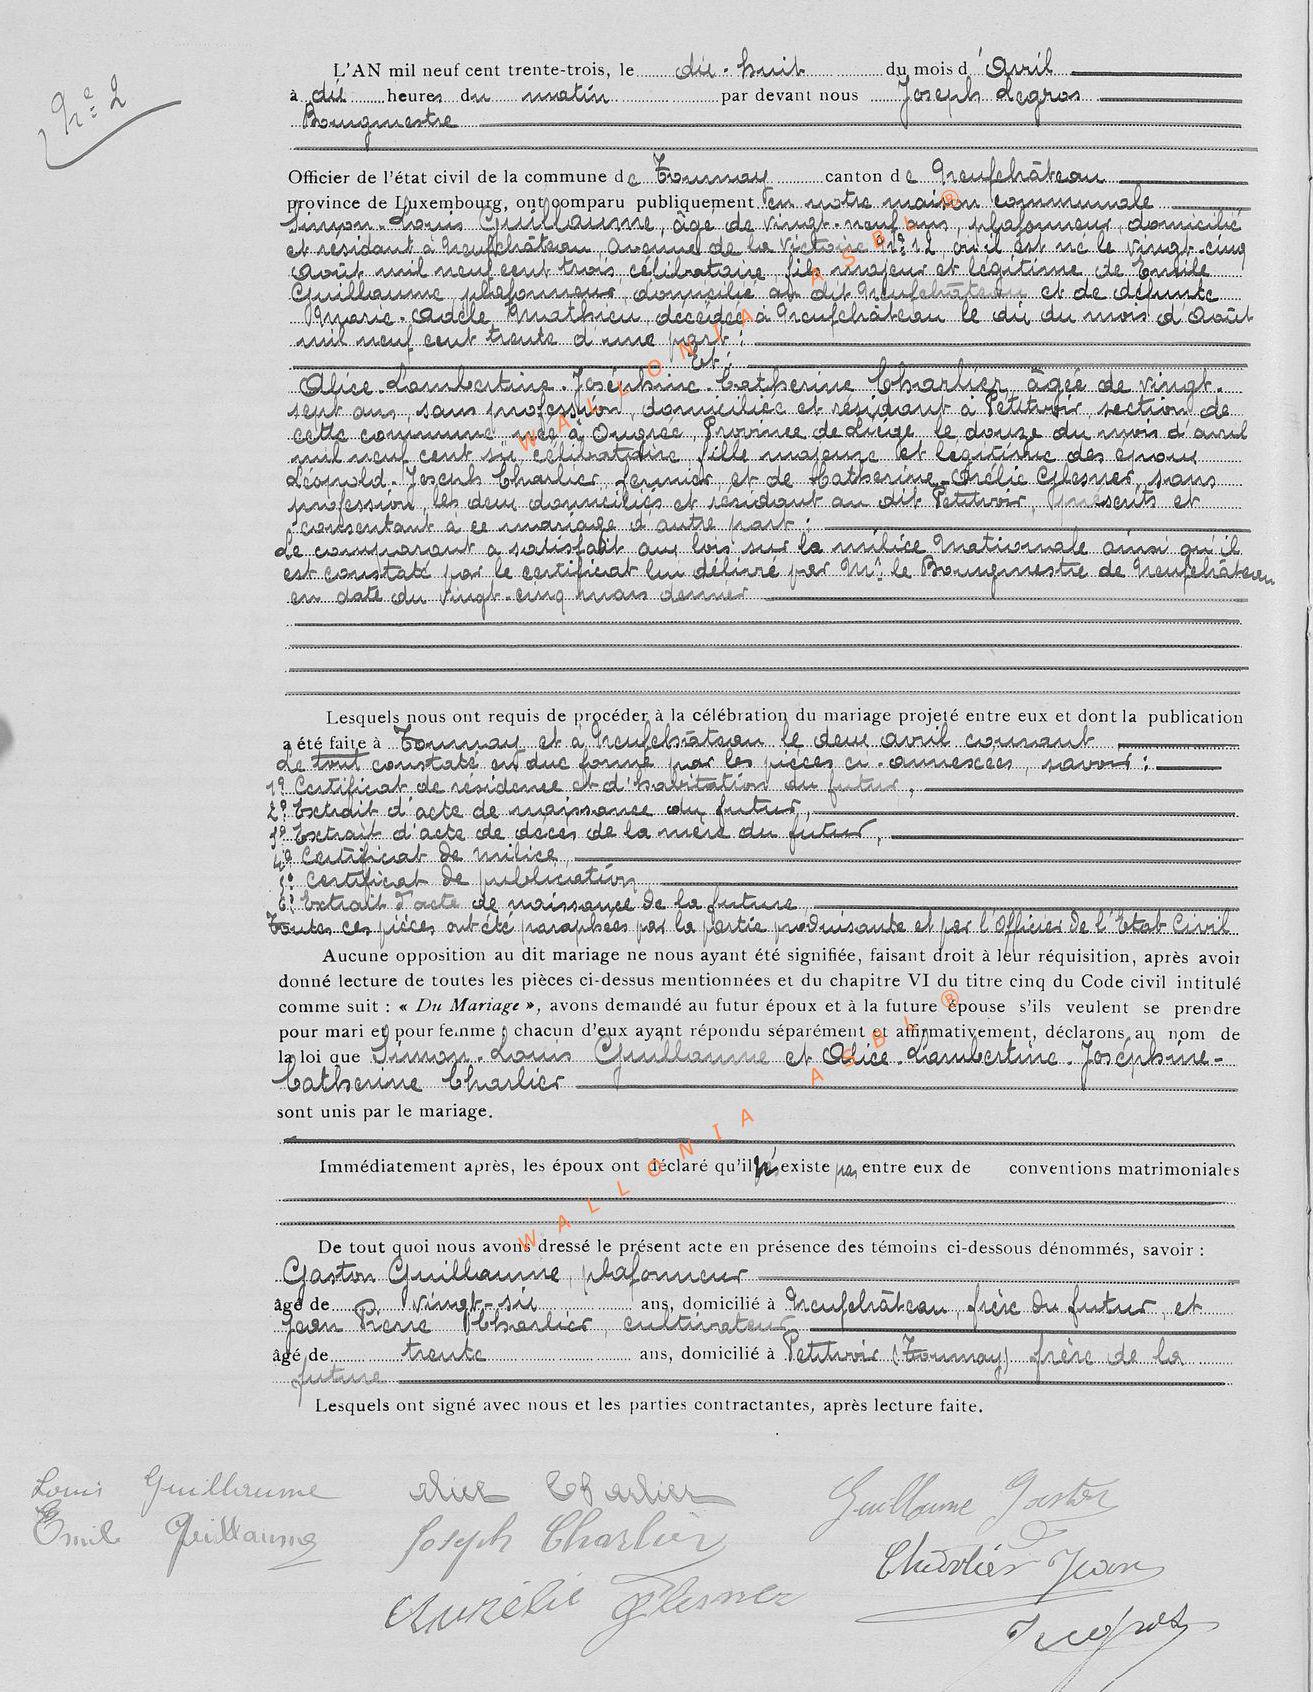 N° 2
L'AN mil neuf cent trente-trois, le dix-huit du mois d'Avril
à dix heures du matin par devant nous Joseph Legros
Bourgmestre
Officier de l'état civil de la commune de Tournay canton de Neufchâteau
province de Luxembourg, ont comparu publiquement en notre maison communale
Simon-Louis Guillaume, âgé de vingt-neuf ans, plafonneur domicilié
et résidant à Neufchâteau Avenue de la Victoire n° 12 où il est né le vingt-cinq
Août mil neuf cent trois célibataire, fils majeur et légitime de Emile
Guillaume, plafonneur, domicilié au dit Neufchâteau et de défunte
Marie-Adèle Mathieu, décédée à Neufchâteau le dix du mois d'Août
mil neuf cent trente d'une part;
Et;
Alice-Lambertine-Joséphine-Catherine Charlier, âgée de vingt-
sept ans, sans profession, domiciliée et résidant à Petitvoir, section de
cette commune née à Ougrée, Province de Liége, le douze du mois d'avril
mil neuf cent six célibataire, fille majeure et légitime des époux
Léopold-Joseph Charlier, fermier et de Catherine-Orélie Glesner, sans
profession, les deux domiciliés et résidant au dit Petitvoir, présents et
consentant à ce mariage d'autre part:
Le comparant a satisfait aux lois sur la milice Nationale ainsi qu'il
est constaté par le certificat lui délivré par Mr le Bourgmestre de Neufchâteau
en date du vingt-cinq mars dernier
Lesquels nous ont requis de procéder à la célébration du mariage projeté entre eux et dont la publication
a été faite à Tournay et à Neufchâteau le deux avril courant
Le tout constaté en due forme par les pièces ci-annexées, savoir:
1° Certificat de résidence et d'habitation du futur,
2° Extrait d'acte de naissance du futur,
3° Extrait d'acte de décès de la mère du futur,
4° Certificat de milice,
5° Certificat de publication
6° Extrait d'acte de naissance de la future
Toutes ces pièces ont été paraphées par la partie produisante et par l'Officier de l'Etat Civil
Aucune opposition au dit mariage ne nous ayant été signifiée, faisant droit à leur réquisition, après avoir
donné lecture de toutes les pièces ci-dessus mentionnées et du chapitre VI du titre cinq du Code civil intitulé
comme suit : « Du Mariage », avons demandé au futur époux et à la future épouse s'ils veulent se prendre
pour mari et pour femme ; chacun d'eux ayant répondu séparément et affirmativement, déclarons au nom de
la loi que Simon-Louis Guillaume et Alice-Lambertine-Joséphine-
Catherine Charlier
sont unis par le mariage.
Immédiatement après, les époux ont déclaré qu'il n'existe pas entre eux de conventions matrimoniales
De tout quoi nous avons dressé le présent acte en présence des témoins ci-dessous dénommés, savoir :
Gaston Guillaume, plafonneur
âgé de vingt-six ans, domicilié à Neufchâteau, frère du futur, et
Jean Pierre Charlier, cultivateur
âgé de trente ans, domicilié à Petitvoir (Tournay) frère de la
future
Lesquels ont signé avec nous et les parties contractantes, après lecture faite.
Louis Guillaume Alice Charlier Guillaume Gaston
Emile Guillaume Joseph Charlier Charlier Jean
Aurélie Glesner J Legros
WALLONIA ASBL ®
WALLONIA ASBL ®